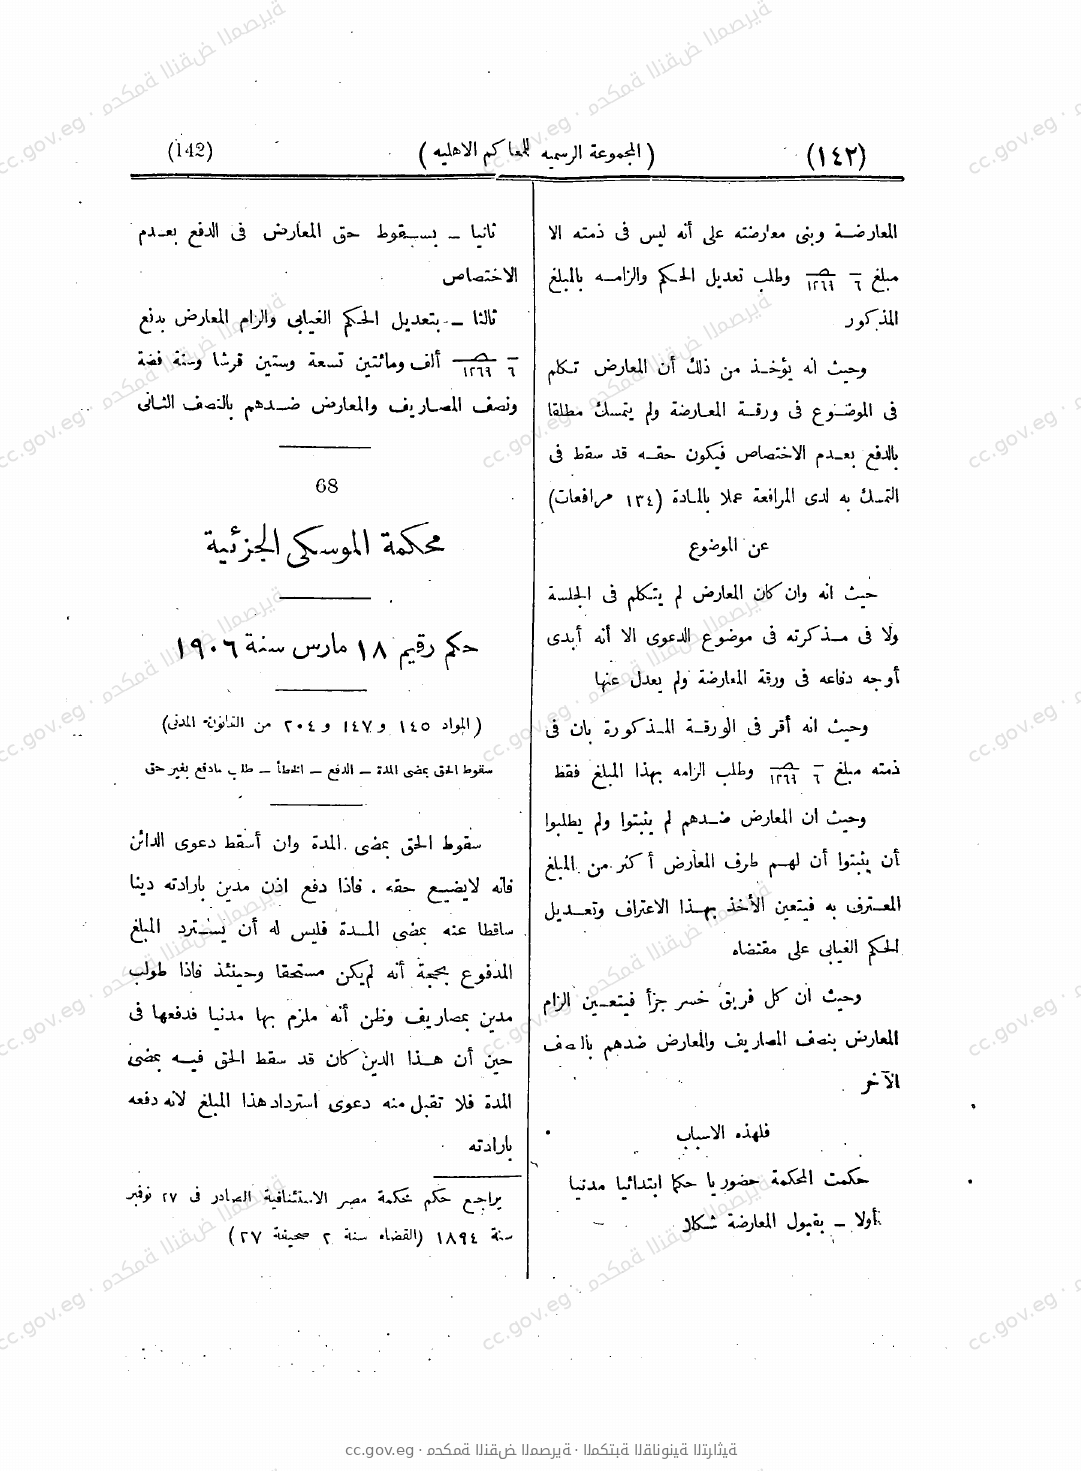 (١٤٢) ( المجموعة الرسمية للمحاكم الاهلية ) (142)
المعارضة وبنى معارضته على أنه ليس فى ذمته الا
مبلغ ٦ ١٢٦٩ وطلب تعديل الحكم والزامه بالمبلغ
المذكور
وحيث انه يؤخذ من ذلك أن المعارض تكلم
فى الموضوع فى ورقة المعارضة ولم يتمسك مطلقا
بالدفع بعدم الاختصاص فيكون حقه قد سقط فى
التمسك به لدى المرافعة عملا بالمادة (١٣٤ مرافعات)
عن الموضوع
حيث انه وان كان المعارض لم يتكلم فى الجلسة
ولا فى مذكرته فى موضوع الدعوى الا أنه أبدى
أوجه دفاعه فى ورقة المعارضة ولم يعدل عنها
وحيث انه أقر فى الورقة المذكورة بان فى
ذمته مبلغ ٦ ١٢٦٩ وطلب الزامه بهذا المبلغ فقط
وحيث ان المعارض ضدهم لم يثبتوا ولم يطلبوا
أن يثبتوا أن لهم طرف المعارض أكثر من المبلغ
المعترف به فيتعين الأخذ بهذا الاعتراف وتعديل
الحكم الغيابى على مقتضاه
وحيث ان كل فريق خسر جزأ فيتعين الزام
المعارض بنصف المصاريف والمعارض ضدهم بالنصف
الآخر
فلهذه الاسباب
حكمت المحكمة حضوريا حكما ابتدائيا مدنيا
أولا – بقبول المعارضة شكلا
ثانيا – بسقوط حق المعارض فى الدفع بعدم
الاختصاص
ثالثا – بتعديل الحكم الغيابى والزام المعارض بدفع
٦ ١٢٦٩ ألف ومائتين تسعة وستين قرشا وستة فضة
ونصف المصاريف والمعارض ضدهم بالنصف الثانى
68
محكمة الموسكى الجزئية
حكم رقيم ١٨ مارس سنة ١٩٠٦
( المواد ١٤٥ و ١٤٧ و ٢٠٤ من القانون المدنى)
سقوط الحق بمضى المدة – الدفع – الخطأ – طلب مادفع بغير حق
سقوط الحق بمضى المدة وان أسقط دعوى الدائن
فانه لايضيع حقه . فاذا دفع اذن مدين بارادته دينا
ساقطا عنه بمضى المدة فليس له أن يسترد المبلغ
المدفوع بحجة أنه لم يكن مستحقا وحينئذ فاذا طولب
مدين بمصاريف وظن أنه ملزم بها مدنيا فدفعها فى
حين أن هذا الدين كان قد سقط الحق فيه بمضى
المدة فلا تقبل منه دعوى استرداد هذا المبلغ لانه دفعه
بارادته
يراجع حكم محكمة مصر الاستئنافية الصادر فى ٢٧ نوفمبر
سنة ١٨٩٤ (القضاء سنة ٢ صحيفة ٢٧)
cc.gov.eg · محكمة النقض المصرية · المكتبة القانونية التراثية